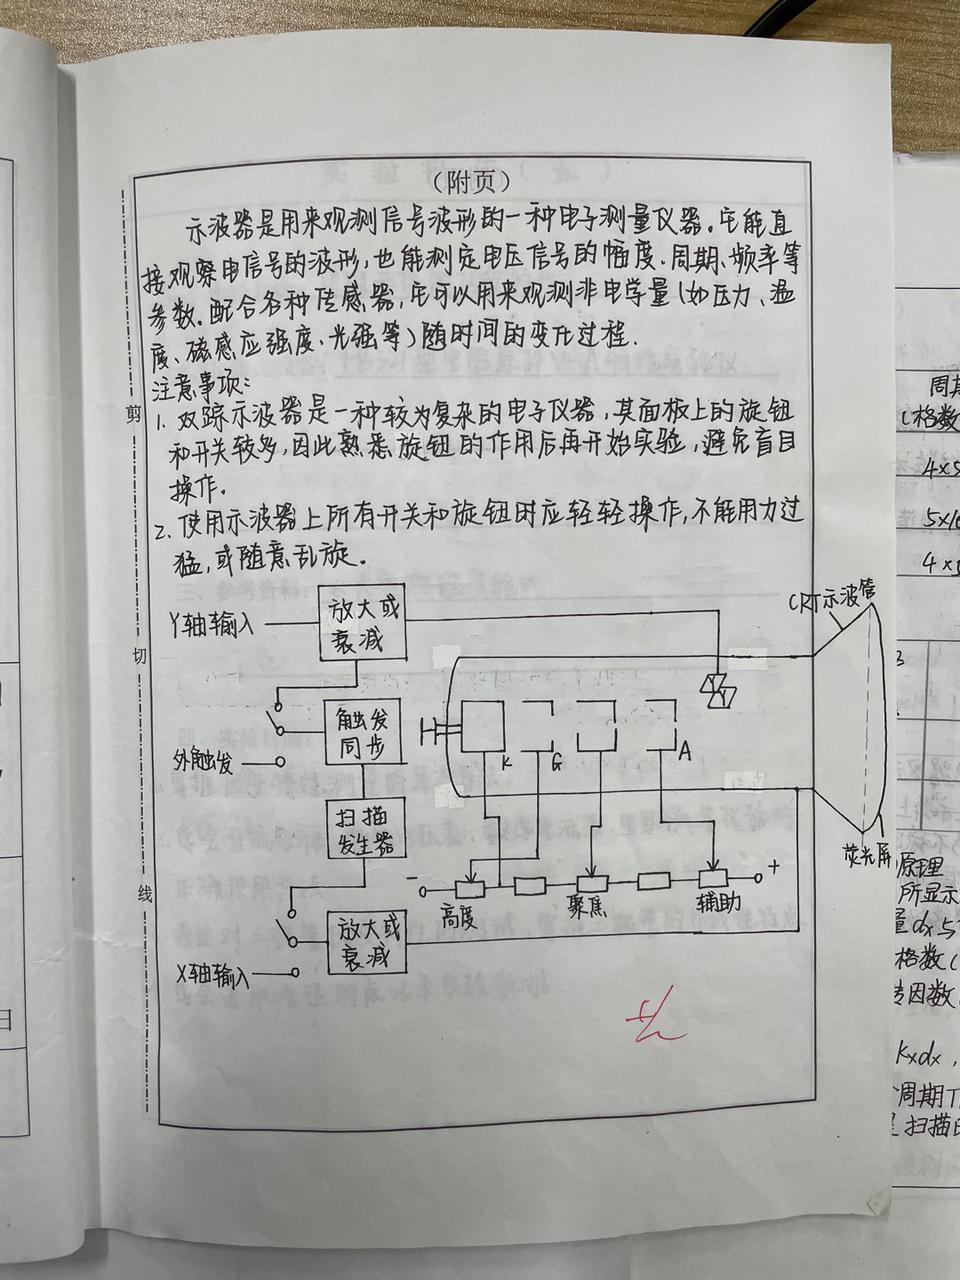 （附页）
示波器是用来观测信号波形的一种电子测量仪器。它能直
接观察电信号的波形，也能测定电压信号的幅度、周期、频率等
参数。配合各种传感器，它可以用来观测非电学量（如压力、温
度、磁感应强度、光强等）随时间的变化过程.
注意事项：
1. 双踪示波器是一种较为复杂的电子仪器，其面板上的旋钮
和开关较多，因此熟悉旋钮的作用后再开始实验，避免盲目
操作。
2. 使用示波器上所有开关和旋钮时应轻轻操作，不能用力过
猛，或随意乱旋。
剪
切
线
CRT示波管
Y轴输入
放大或
衰减
触发
同步
外触发
K
G
A
扫描
发生器
荧光屏
-
+
高度
聚焦
辅助
放大或
衰减
X轴输入
日
周期
（格数
4×5
5×10
原理
所显示
量dx与
格数（
Kxdx，
周期T
扫描